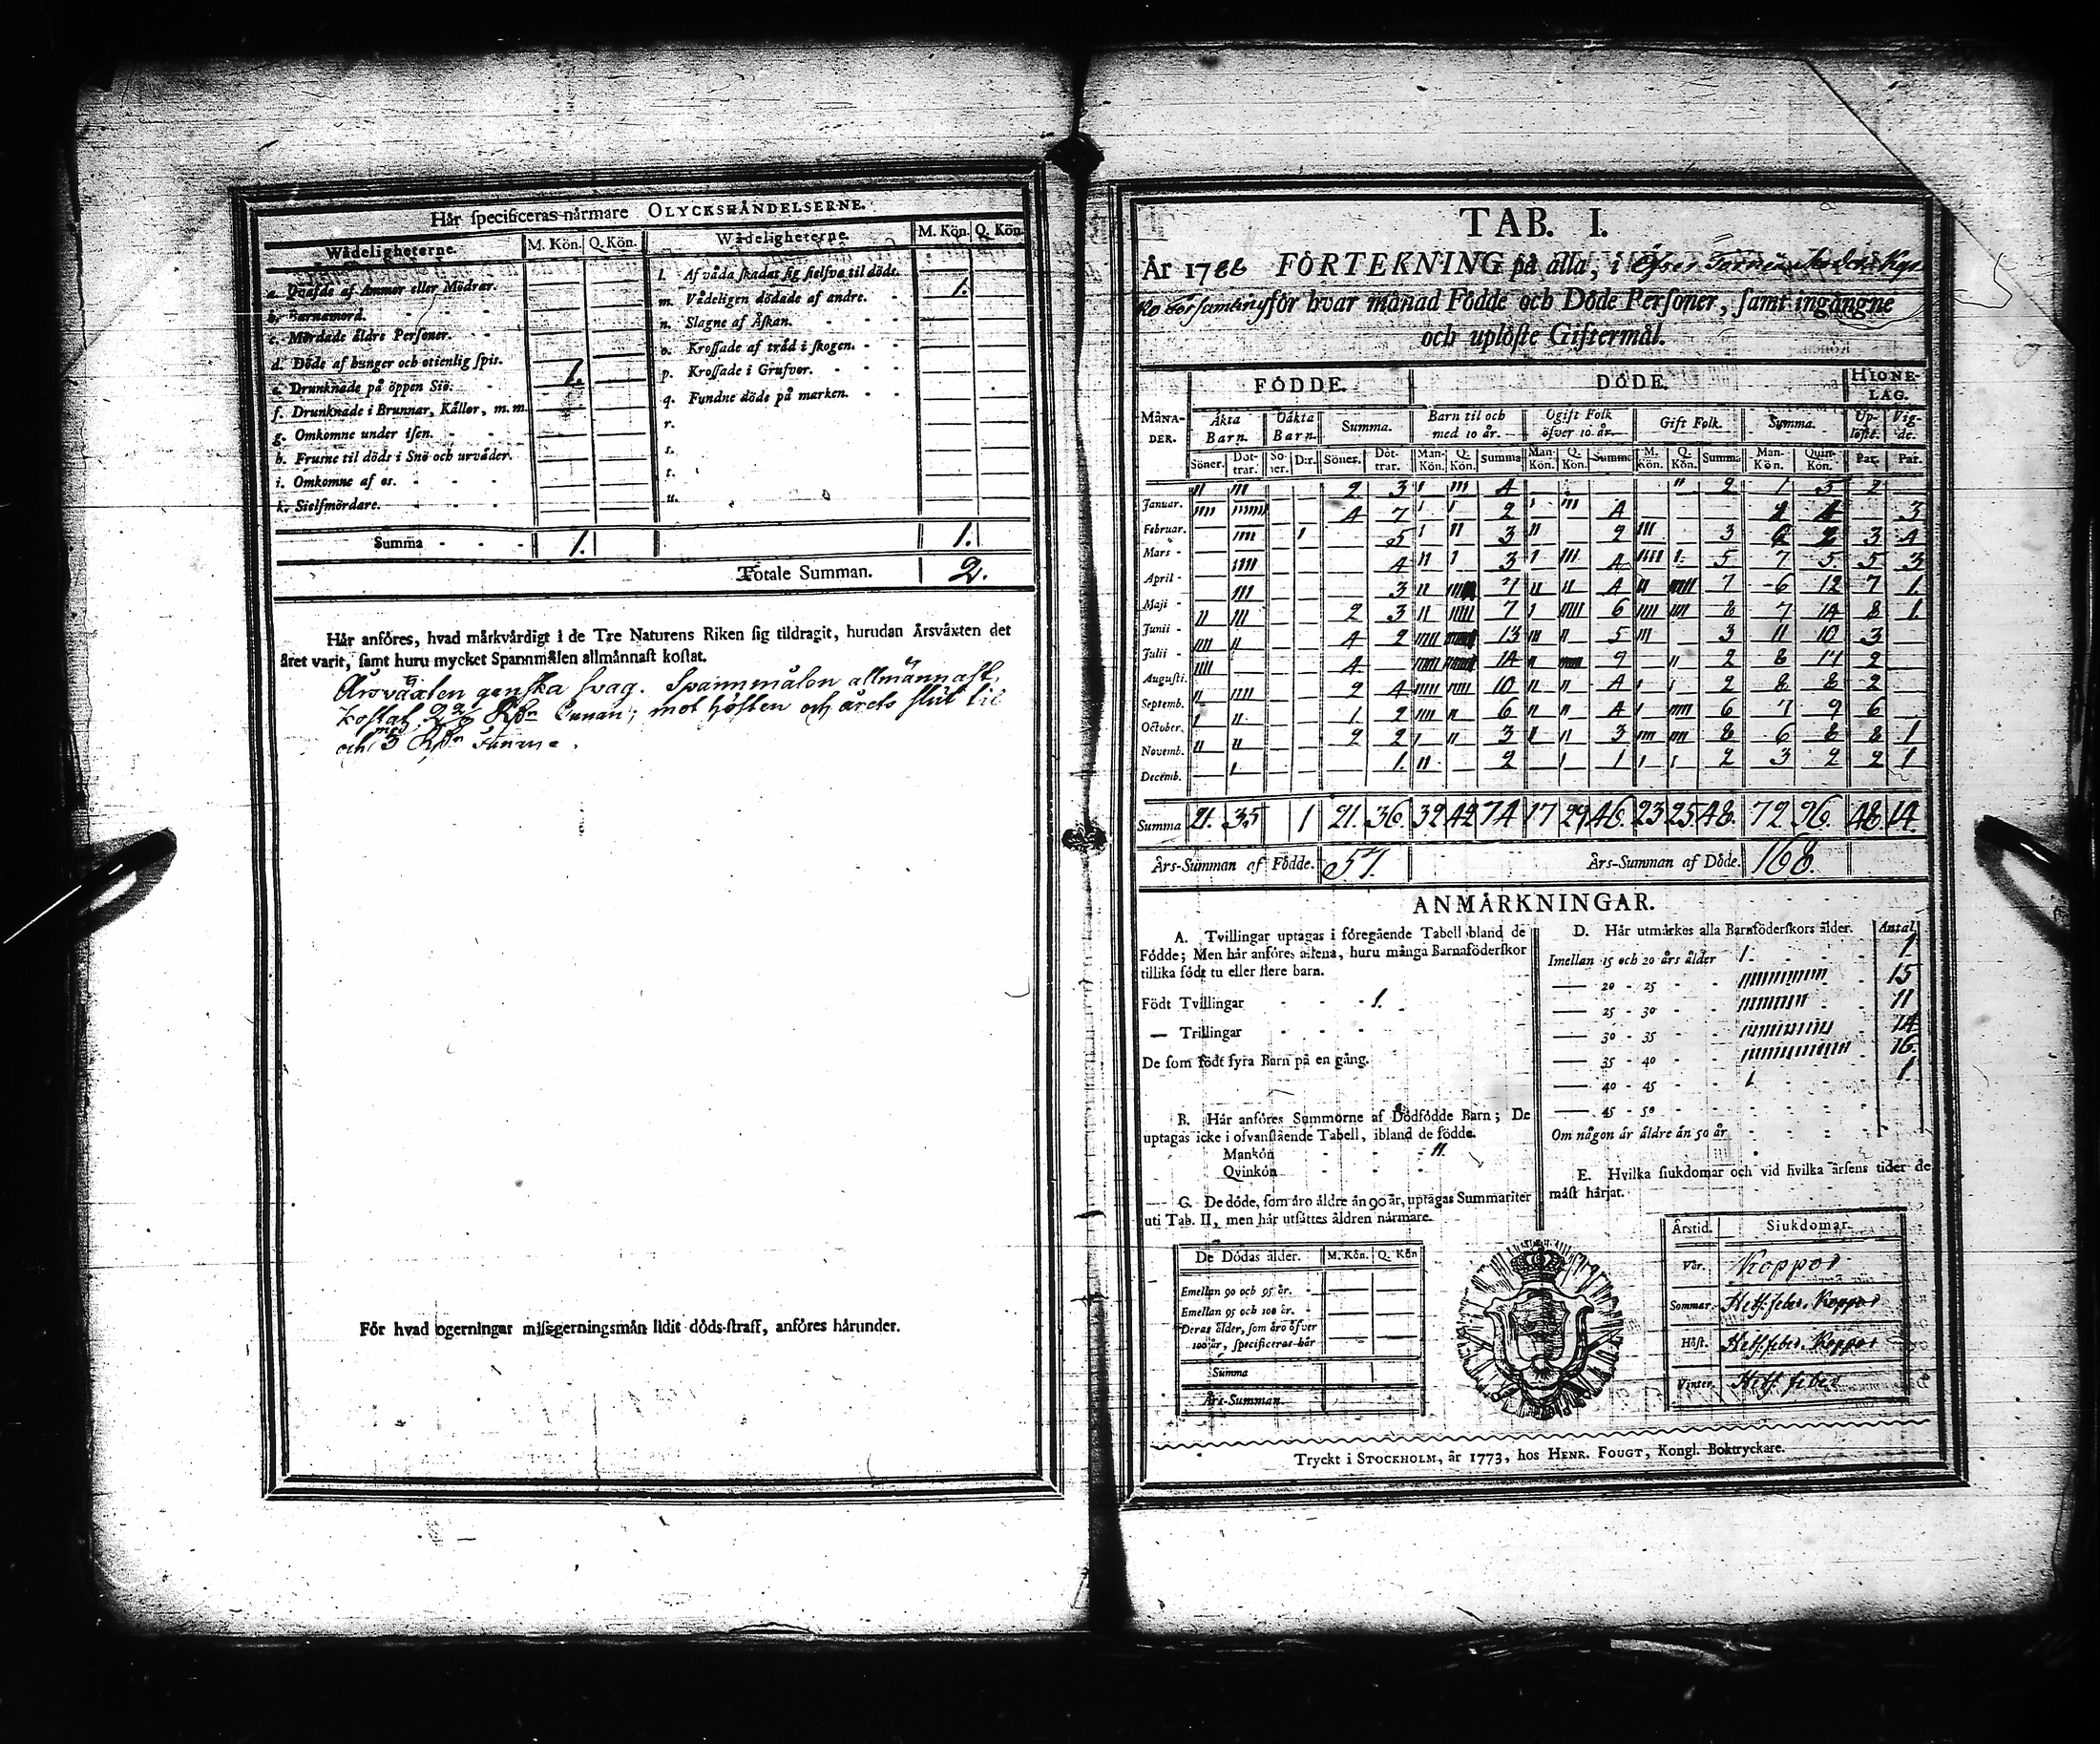 Hår specificeras nårmare OLYCKSHÅNDELSERNE.
Wådeligheterne. M. Kön. Q. Kön. Wådeligheterne. M. Kön. Q. Kön.
a. Qvåfde af Ammor eller Mödrar.
b. Barnamord.
c. Mördade åldre Personer.
d. Döde af hunger och otienlig spis.
e. Drunknade på öppen Siö. 1.
f. Drunknade i Brunnar, Kållor, m. m.
g. Omkomne under isen.
h. Frusne til döds i Snö och urvåder.
i. Omkomne af os.
k. Sielfmördare.
l. Af våda skadat sig sielfva til döds.
m. Vådeligen dödade af andre. 1.
n. Slagne af Åskan.
o. Krossade af tråd i skogen.
p. Krossade i Grufvor.
q. Fundne döde på marken.
r.
s.
t.
u.
Summa 1. 1.
Totale Summan. 2.
Hår anföres, hvad mårkvårdigt i de Tre Naturens Riken sig tildragit, hurudan Årsvåxten det
året varit, samt huru mycket Spannmålen allmånnast kostat.
Årsväxten ganska svag. Spannmålen allmännast
kostat Tunnan; mot hösten och årets slut til
och med 3
För hvad ogerningar missgerningsmån lidit döds-straff, anföres hårunder.
TAB. I.
År 1786 FÖRTEKNING på alla, i
Församling för hvar månad Födde och Döde Personer, samt ingångne
och uplöste Giftermål.
FÖDDE. DÖDE. HIONELAG.
MÅNADER. Åkta Barn. Oåkta Barn. Summa. Barn til och med 10 år. Ogift Folk öfver 10 år. Gift Folk. Summa. Uplöste. Vigde.
Söner. Döttrar. Söner. D:r. Söner. Döttrar. Man-Kön. Q. Kön. Summa Man-Kön. Q. Kön. Summa M. Kön. Q. Kön. Summa Man-Kön. Quin-Kön. Par. Par.
Januar. II III 2 3 I III 4 II 2 1 5 2
Februar. IIII IIIIIII 4 7 I I 2 I III 4 2 4 3
Mars IIII 1 5 I II 3 II 2 III 3 6 2 3 4
April IIII 4 II I 3 I III 4 IIII I 5 7 5 5 3
Maji III 3 II IIIII 7 II II 4 II IIIII 7 6 12 7 1
Junii II III 2 3 II IIIII 7 I IIIII 6 IIII IIII 8 7 14 8 1
Julii IIII II 4 2 13 III II 5 III 3 11 10 3
Augusti. IIII 4 14 9 II 2 8 17 2
Septemb. II IIII 2 4 IIIII IIIII 10 II II 4 I I 2 8 8 2
October. I II 1 2 IIII II 6 II II 4 I IIIII 6 7 9 6
Novemb. II II 2 2 I II 3 I II 3 IIII IIII 8 6 8 8 1
Decemb. I 1 II 2 I 1 I I 2 3 2 2 1
Summa 21. 35 1 21. 36. 32 42 74 17 29 46. 23 25 48. 72 96. 48. 14.
Års-Summan af Födde. 57. Års-Summan af Döde. 168.
ANMÅRKNINGAR.
A. Tvillingar uptagas i föregående Tabell ibland de
Födde; Men hår anföres allena, huru många Barnaföderskor
tillika födt tu eller flere barn.
Födt Tvillingar 1.
— Trillingar
De som födt fyra Barn på en gång.
B. Hår anföres Summorne af Dödfödde Barn; De
uptagas icke i ofvanstående Tabell, ibland de födde.
Mankön II.
Qvinkön
C. De döde, som åro åldre ån 90 år, uptagas Summariter
uti Tab. II, men hår utsåttes åldren nårmare.
De Dödas ålder. M. Kön. Q. Kön
Emellan 90 och 95 år.
Emellan 95 och 100 år.
Deras ålder, som åro öfver
100 år, specificeras hår
Summa
Års-Summan
D. Hår utmårkes alla Barnföderskors ålder. Antal
Imellan 15 och 20 års ålder 1 1.
20 - 25 15
25 - 30 11
30 - 35 14
35 - 40 16.
40 - 45 1 1.
45 - 50
Om någon år åldre ån 50 år
E. Hvilka siukdomar och vid hvilka årsens tider de
måst hårjat.
Årstid. Siukdomar.
Vår. Koppor
Sommar. Hets. feber. Koppor
Höst. Hets. feber. Koppor
Vinter. Hets. feber
Tryckt i STOCKHOLM, år 1773, hos HENR. FOUGT, Kongl. Boktryckare.